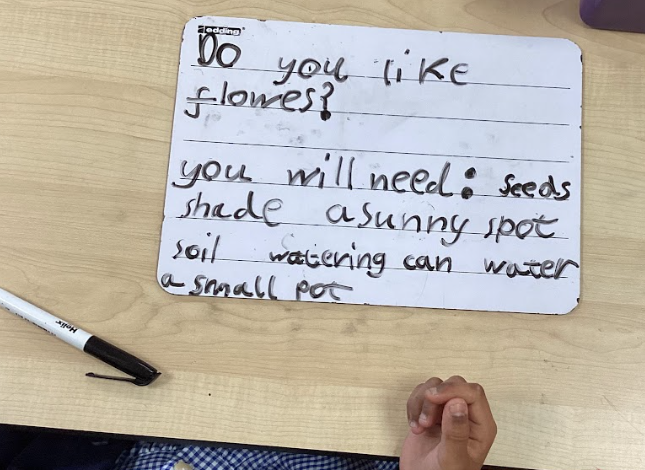 edding
Do you like
flowes?
you will need: seeds
shade a sunny spot
soil watering can water
a small pot
Helix